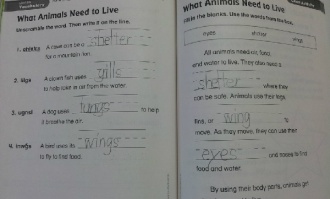 What Animals Need to Live
Unscramble the word. Then write it on the line.
1.
A cave can be a shelter
for a mountain lion.
2.
A clown fish uses gills
to help take in air from the water.
3.
A dog uses lungs to help
it breathe the air.
4.
A bird uses its wings
to fly to find food.
What Animals Need to Live
Fill in the blanks. Use the words from the box.
eyes shelter wings
All animals need air, food,
and water to live. They also need a
shelter where they
can be safe. Animals use their legs,
fins, or wing to
move. As they move, they can use their
eyes and noses to find
food and water.
By using their body parts, animals get